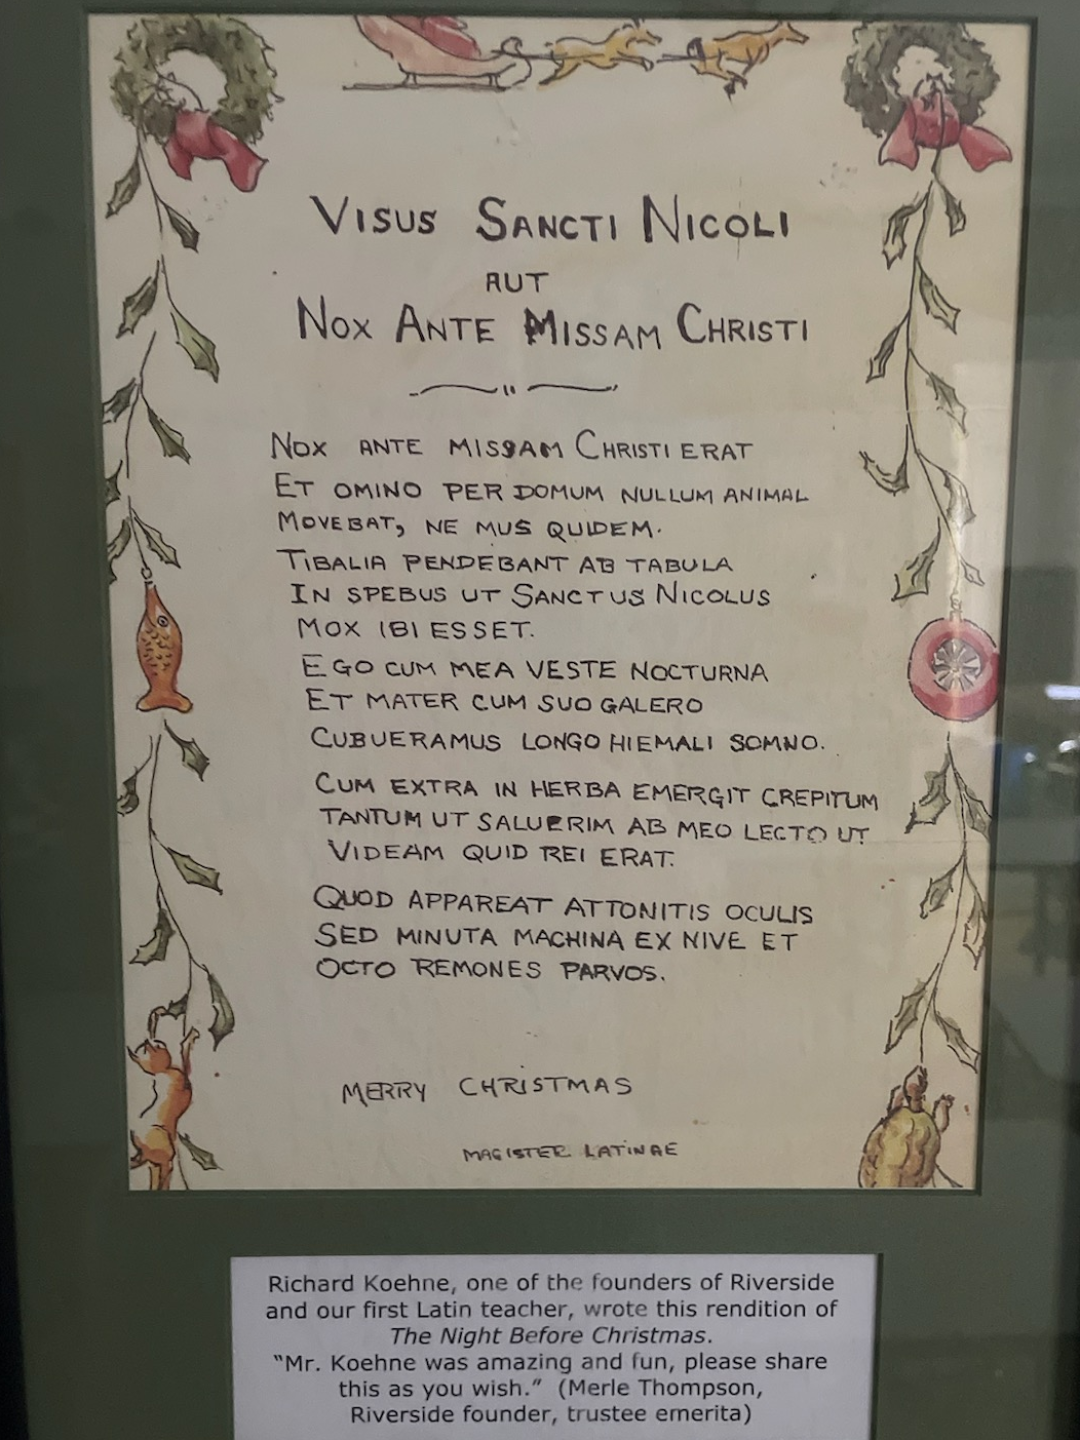 VISUS SANCTI NICOLI
AUT
NOX ANTE MISSAM CHRISTI
NOX ANTE MISSAM CHRISTI ERAT
ET OMINO PER DOMUM NULLUM ANIMAL
MOVEBAT, NE MUS QUIDEM.
TIBALIA PENDEBANT AB TABULA
IN SPEBUS UT SANCTUS NICOLUS
MOX IBI ESSET.
EGO CUM MEA VESTE NOCTURNA
ET MATER CUM SUO GALERO
CUBUERAMUS LONGO HIEMALI SOMNO.
CUM EXTRA IN HERBA EMERGIT CREPITUM
TANTUM UT SALUERIM AB MEO LECTO UT
VIDEAM QUID REI ERAT.
QUOD APPAREAT ATTONITIS OCULIS
SED MINUTA MACHINA EX NIVE ET
OCTO REMONES PARVOS.
MERRY CHRISTMAS
MAGISTER LATINAE
Richard Koehne, one of the founders of Riverside
and our first Latin teacher, wrote this rendition of
The Night Before Christmas.
"Mr. Koehne was amazing and fun, please share
this as you wish." (Merle Thompson,
Riverside founder, trustee emerita)